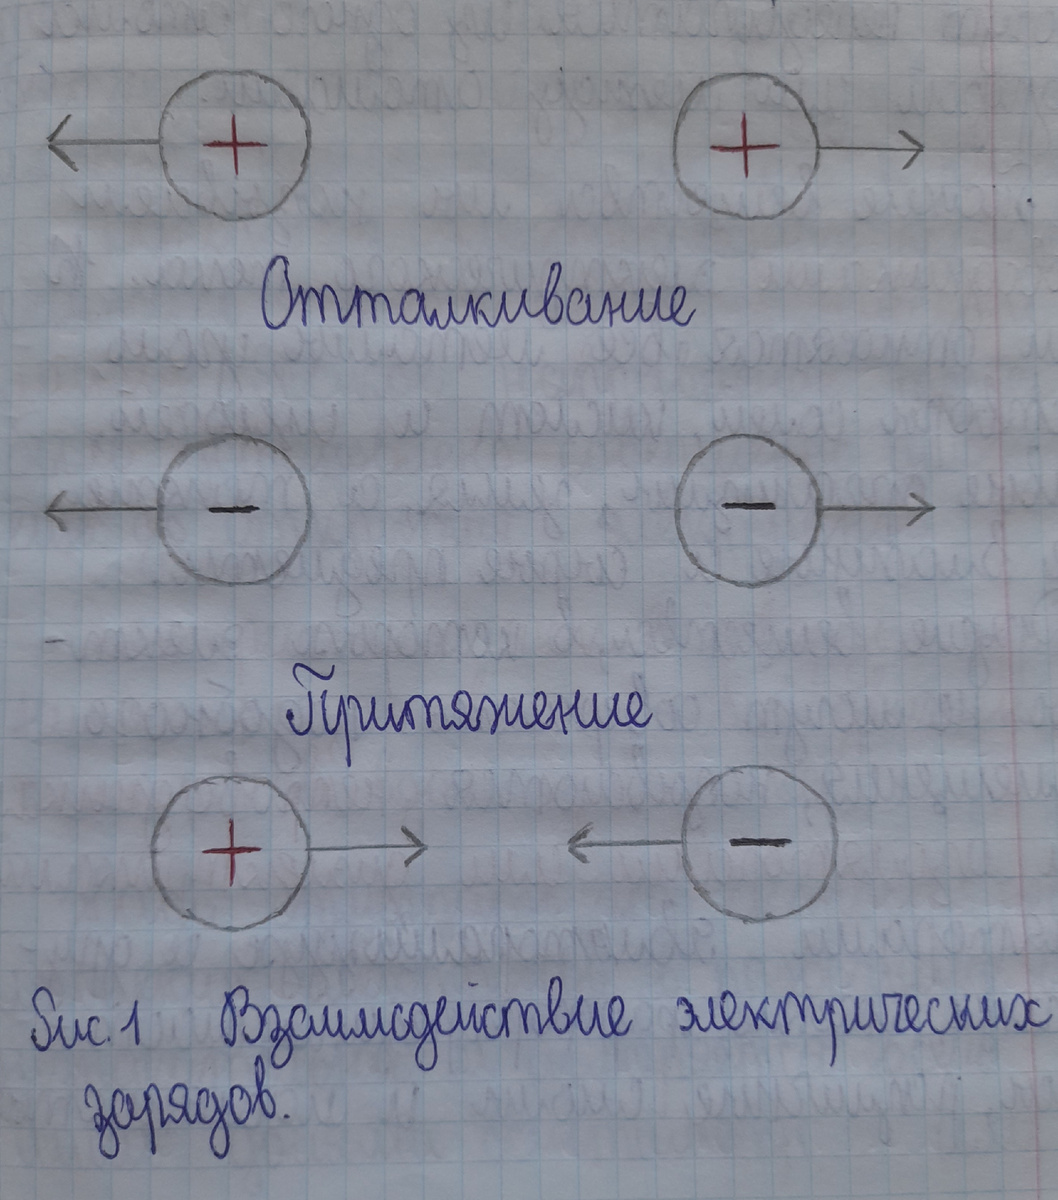 + +
Отталкивание
- -
Притяжение
+ -
Рис.1 Взаимодействие электрических
зарядов.